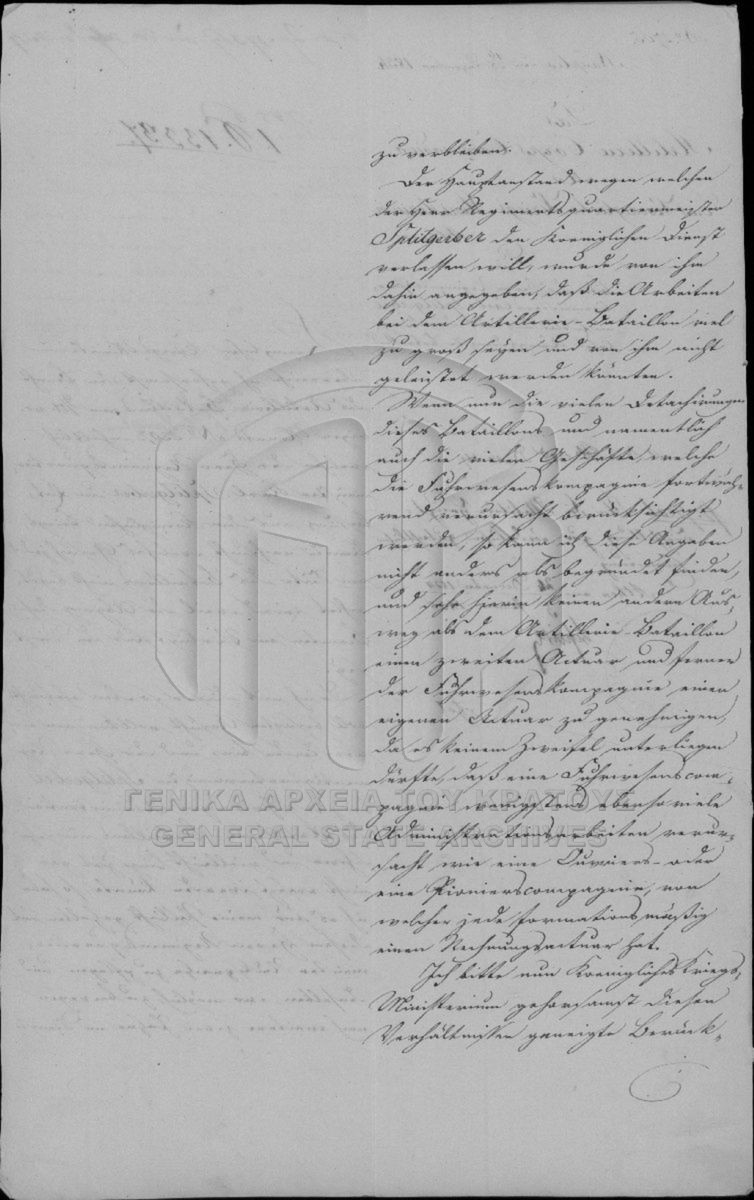 zu verbleiben.
Der Hauptanstand wegen welchen
der Herr Regimentsquartiermeister
Splitgerber den Koeniglichen Dienst
verlassen will, wurde von ihm
dahin angegeben, daß die Arbeiten
bei dem Artillerie-Bataillon viel
zu groß seyen und von ihm nicht
geleistet werden könnten.
Wenn nun die vielen Detachirungen
dieses Bataillons und namentlich
auch die vielen Geschäfte, welche
die Fuhrwesenskompagnie fortwäh-
rend verursacht berücksichtigt
werden, so kann ich diese Angaben
nicht anders als begründet finden,
und sehe hierin keinen andern Aus-
weg als dem Artillerie-Bataillon
einen zweiten Actuar und ferner
der Fuhrwesenskompagnie einen
eigenen Actuar zu genehmigen,
da es keinem Zweifel unterliegen
dürfte, daß eine Fuhrwesenscom-
pagnie wenigstens ebenso viele
Administrationsarbeiten verur-
sacht, wie eine Ouvriers- oder
eine Pionierscompagnie, von
welcher jede formationsmäßig
einen Rechnungsactuar hat.
Ich bitte nun Koenigliches Kriegs-
Ministerium gehorsamst diesen
Verhältnissen geneigte Berück-
ΓΕΝΙΚΑ ΑΡΧΕΙΑ ΤΟΥ ΚΡΑΤΟΥΣ
GENERAL STATE ARCHIVES